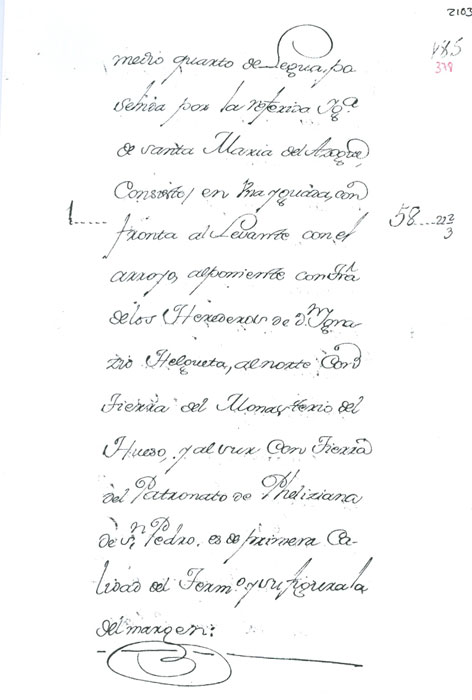 2103
485
378
medio quarto de Legua, po
sehida por la referida Yg.ª
de santa Maria del Azogue
Consiste, en una yguada, con
1..... fronta al Levante con el 58....21 2/3
arroyo, al poniente con tr̃a
de los Herederos de d.n Ygna
zio Helgueta, al norte Con
tierra del Monasterio del
Hueso, y al sur Con tierra
del Patronato de Pheliziana
de s.n Pedro. es de primera Ca-
lidad del Term.o y su figura la
del margen: